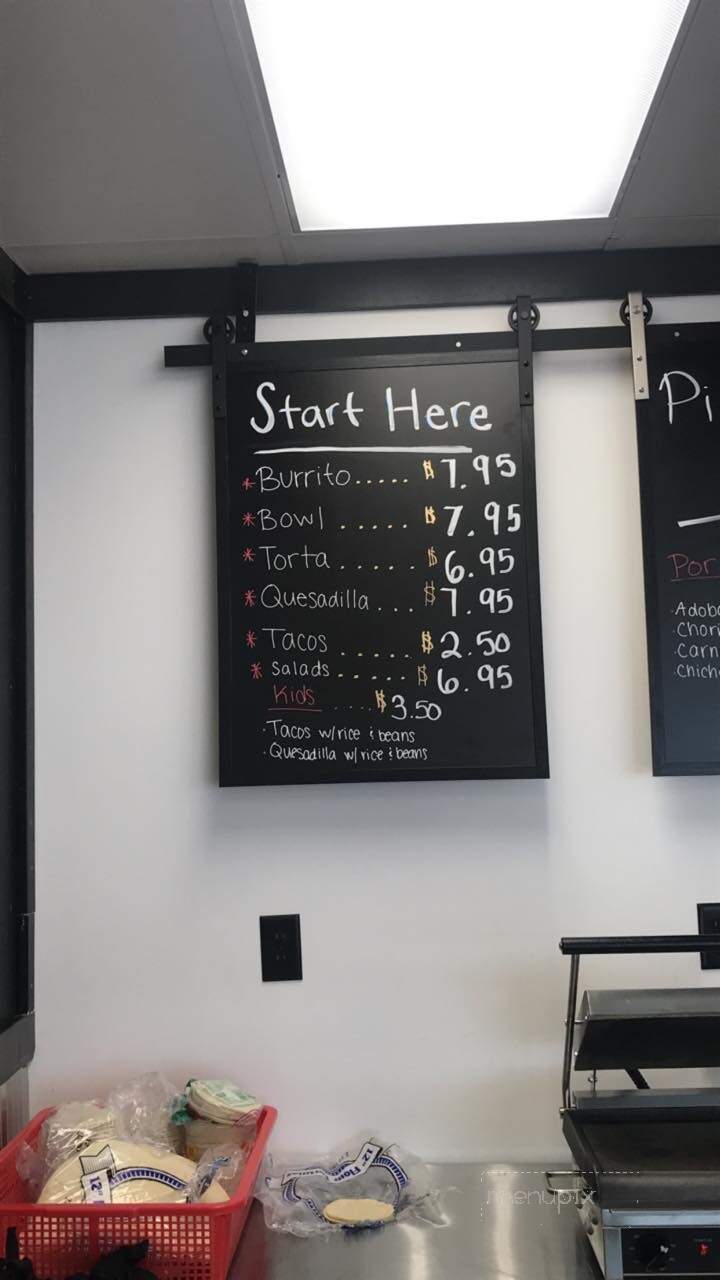 Start Here
* Burrito..... $ 7.95
* Bowl ..... $ 7.95
* Torta ...... $ 6.95
* Quesadilla... $ 7.95
* Tacos ..... $ 2.50
* Salads ..... $ 6.95
Kids ..... $3.50
· Tacos w/rice & beans
· Quesadilla w/ rice & beans
Pi
Por
·Adob
·Chori
·Carn
·Chich
12"
12" Flou
menupix